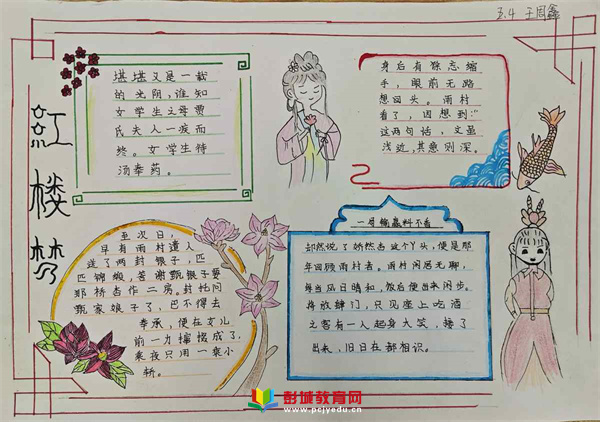 5.4 王周鑫
红楼梦
堪堪又是一载
的光阴,谁知
女学生之母贾
氏夫人一疾而
终。女学生侍
汤奉药。
身后有馀忘缩
手,眼前无路
想回头。雨村
看了,因想到:
这两句话,文虽
浅近,其意则深。
至次日,
早有雨村遣人
送了两封银子,匹
匹锦缎,答谢甄银子要
那桥杏作二房。封托问
甄家娘子了,巴不得去
奉承,便在女儿
前一力撺掇成了,
乘夜只用一乘小
轿。
却然说了娇然杏这个丫头,便是那
年回顾雨村者。雨村闲居无聊,
每当风日晴和,饭后便出来闲步。
将放肆门,只见座上吃酒
之客有一人起身大笑,接了
出来,旧日在都相识。
彭城教育网
www.pcjyedu.cn